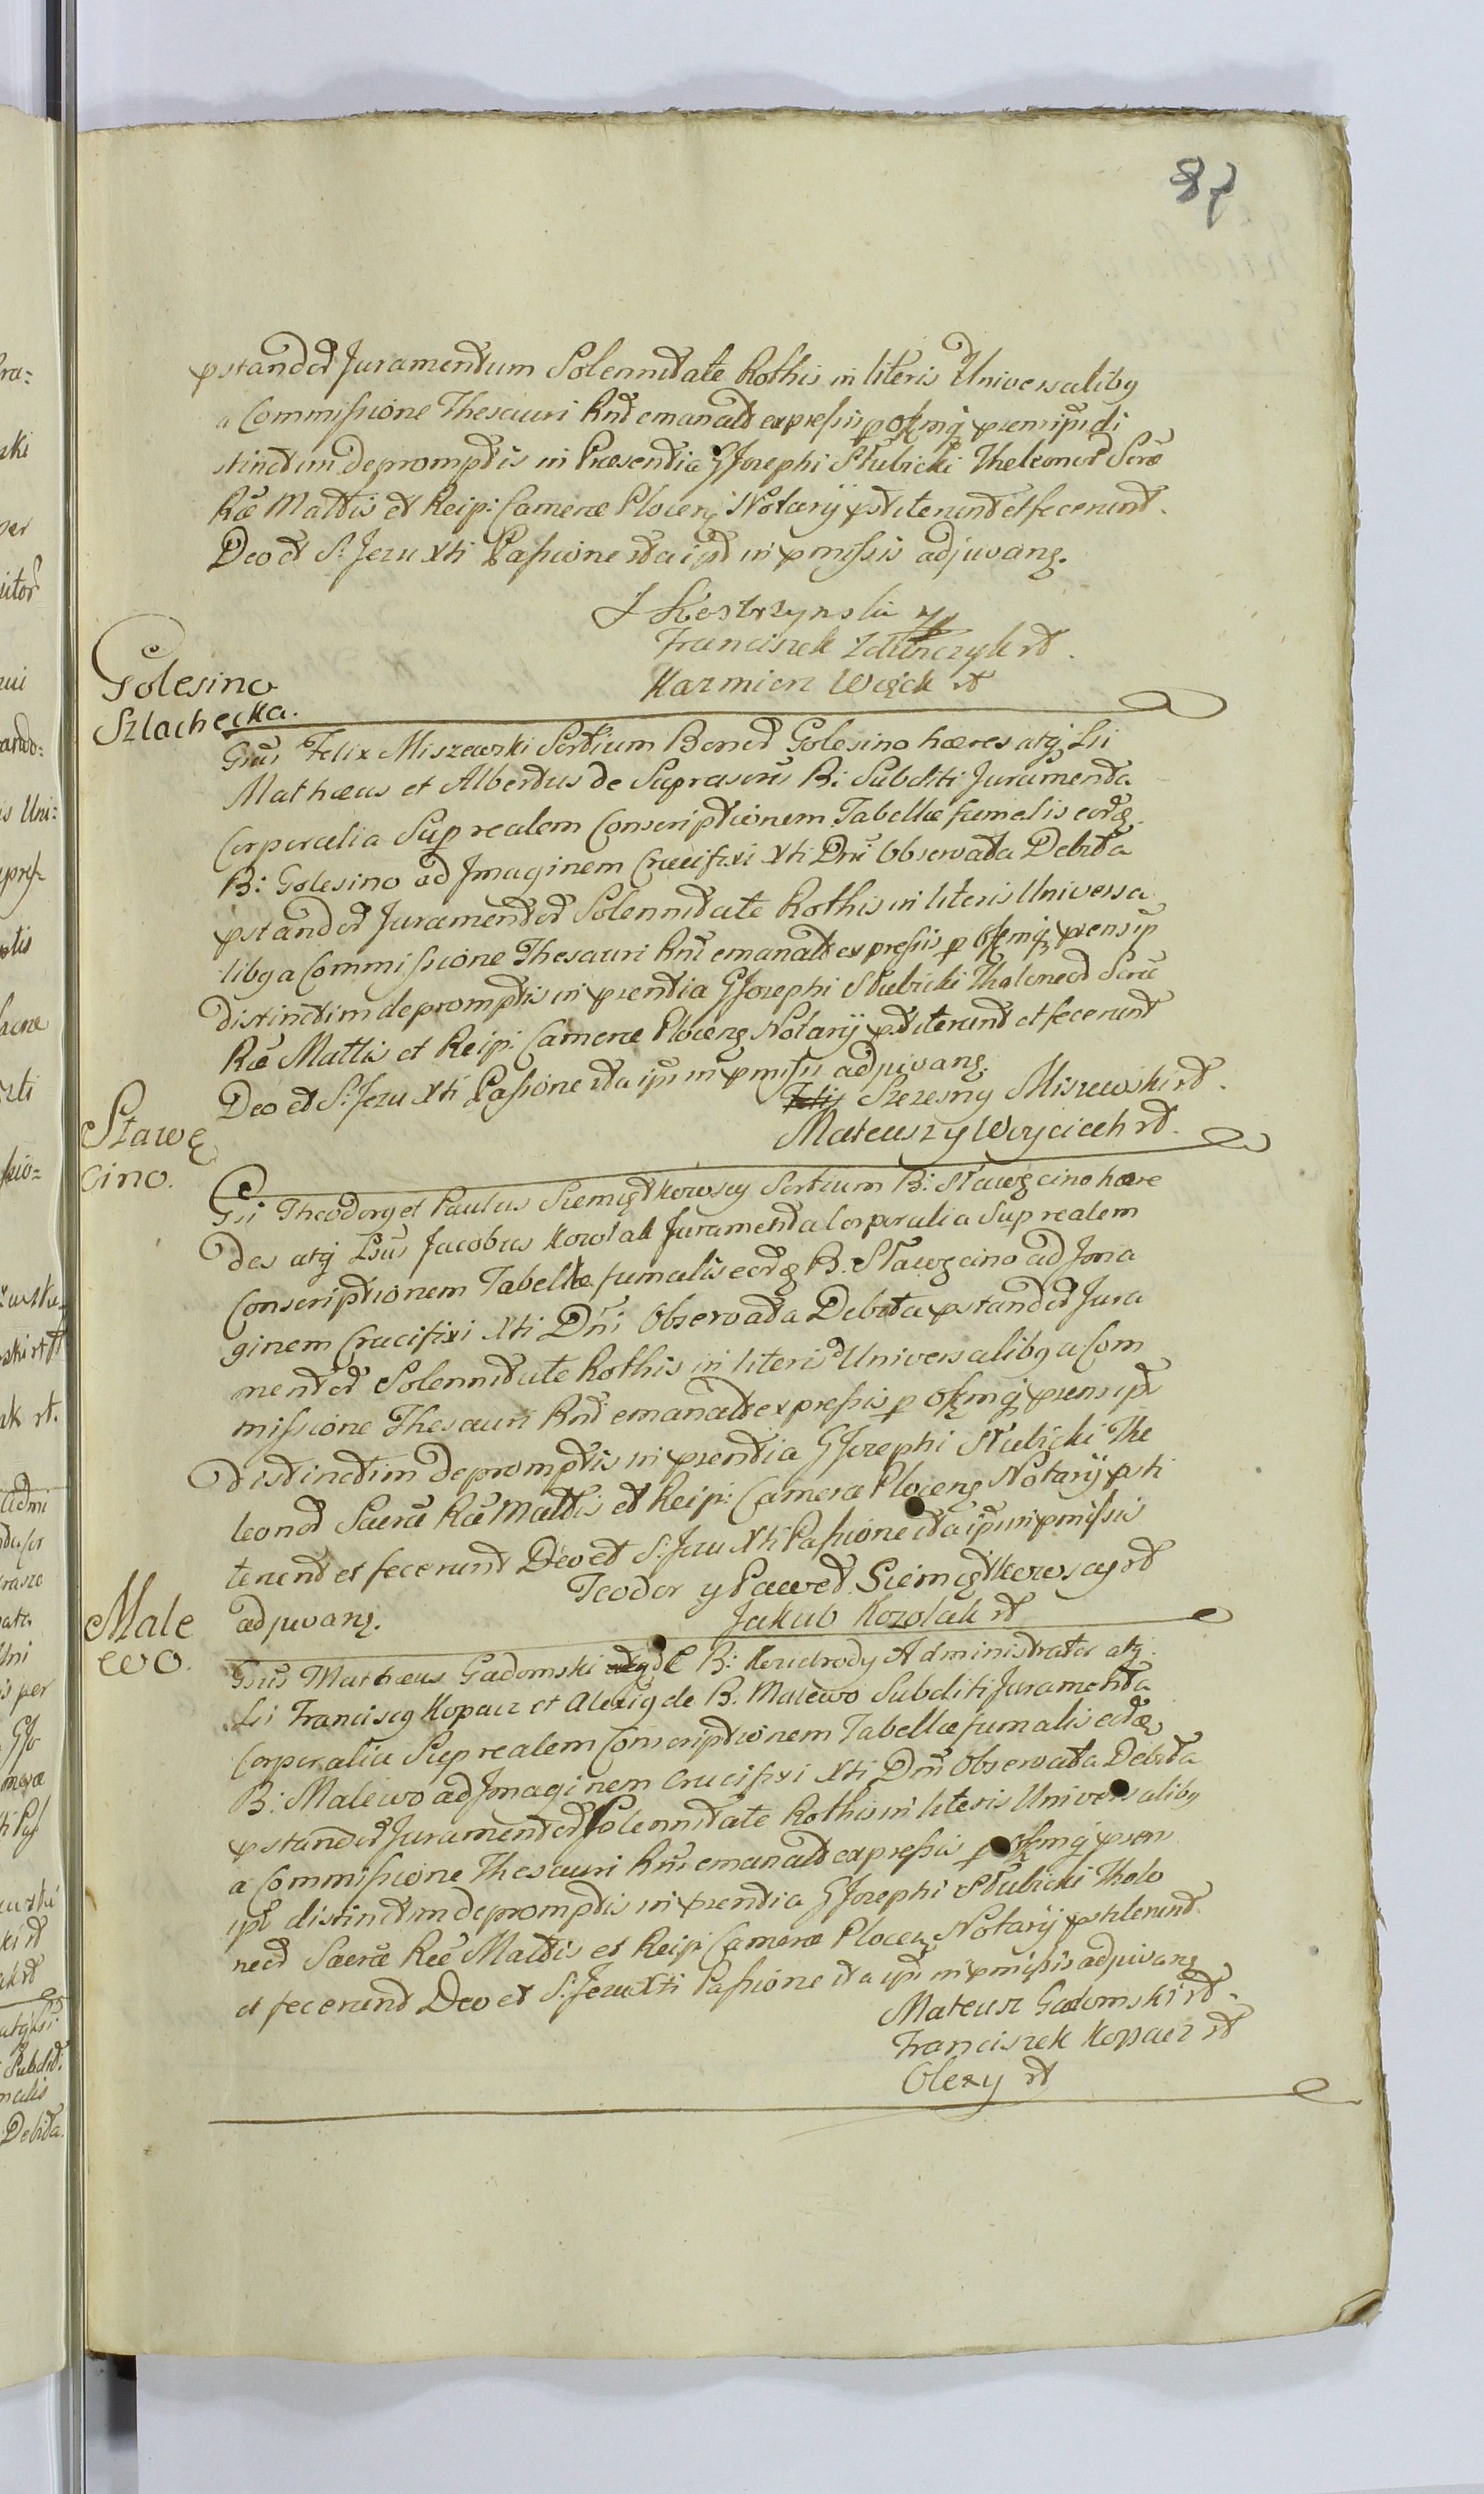 87
pstandor Juramentum Solennitate Rothis in literis Universalibq
a Commissione Thesauri Rnt emanatt expressis p ofkmq prensipt di
stinctim depromptis in Præsentia GJosephi Słubicki Theleonior Scræ
Ræ Mattis et Reip: Cameræ Plocenz Notarÿ pstiterunt et fecerunt.
Deo et S. Jezu Xti Passione ita ipt in pmissis adjuvanz.
J Kostrzynski
Franciszek Zdunczyk rt.
Kazmierz Wącik rt
Golesino
Szlachecka.
Gsus Felix Miszewski Sortium Bonor Golesino hæres atq Lsi
Mathæus et Albertus de Suprascris B: Subditi Juramenta
Corporalia Sup realem Conscriptionem Tabellæ fumalis eordæ
B: Golesino ad Imaginem Crucifixi Xti Dni Observata Debita
pstandor Juramentor Solennitate Rothis in literis Universa
libq a Commissione Thesauri Rni emanatt expressis p ofkmq prensip
distinctim depromptis in prentia GJosephi Słubicki Theloneor Scræ
Ræ Mattis et Reip: Cameræ Plocenz Notarÿ pstiterunt et fecerunt
Deo et S. Jezu Xti Passione ita ips in pmissis adjuvanz.
Szczesny Miszewski rt.
Mateusz y Woyciech rt.
Stawę
cino.
Gsi Theodorq et Paulus Siemiątkowscy Sortium B: Stawęcino hære
des atq Lsus Jacobus Kozolak Juramenta Corporalia Sup realem
Conscriptionem Tabellæ fumalis eordæ B. Stawęcino ad Ima
ginem Crucifixi Xti Dni Observata Debita pstandor Jura
mentor Solennitate Rothis in literis Universalibq a Com
missione Thesauri Rnt emanatt expressis p ofkmq prensipt
Distinctim Depromptis in prentia GJosephi Słubicki The
leonor Sacræ Ræ Mattis et Reip: Cameræ Plocenz Notarÿ psti
terunt et fecerunt Deo et S. Jezu Xti Passione ita ips in pmissis
adjuvanz.
Teodor y Paweł Siemiątkowscy rt
Jakub Kozolak rt
Male
wo.
Gsus Mathæus Gadomski de B: Koziebrody Administrator atq
Lsi Franciscq Kopacz et Alexiq de B. Malewo Subditi Juramenta
Corporalia Sup realem Conscriptionem Tabellæ fumalis eordæ
B: Malewo ad Imaginem Crucifixi Xti Dni Observata Debita
pstandor Juramentor Solennitate Rothis in literis Universalibq
a Commissione Thesauri Rni emanatt expressis p ofkmq pren
sipt distinctim depromptis in prentia GJosephi Słubicki Thelo
neor Sacræ Ræ Mattis et Reip: Cameræ Plocenz Notarÿ pstiterunt
et fecerunt Deo et S. Jezu Xti Passione ita ips in pmissis adjuvanz
Mateusz Gadomski rt.
Franciszek Kopacz rt
Olexy rt